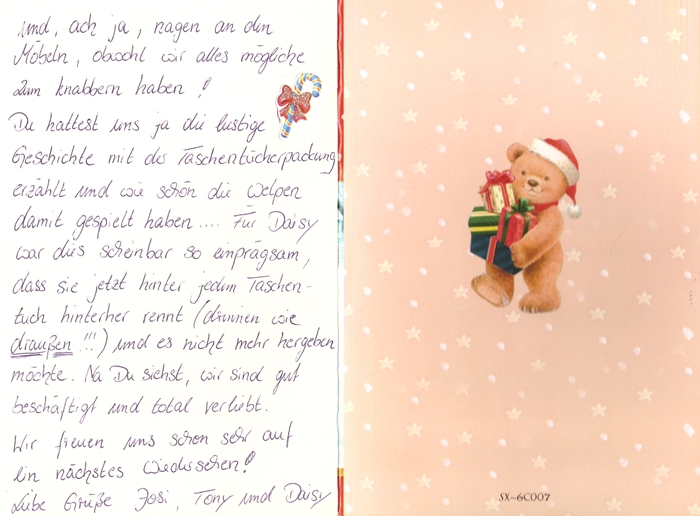 und, ach ja, nagen an den
Möbeln, obwohl wir alles mögliche
zum knabbern haben!
Du hattest uns ja die lustige
Geschichte mit der Taschentücherpackung
erzählt und wie schön die Welpen
damit gespielt haben.... Für Daisy
war dies scheinbar so einprägsam,
dass sie jetzt hinter jedem Taschen-
tuch hinterher rennt (drinnen wie
draußen !!!) und es nicht mehr hergeben
möchte. Na Du siehst, wir sind gut
beschäftigt und total verliebt.
Wir freuen uns schon sehr auf
ein nächstes Wiedersehen!
Liebe Grüße Josi, Tony und Daisy
SX-6C007